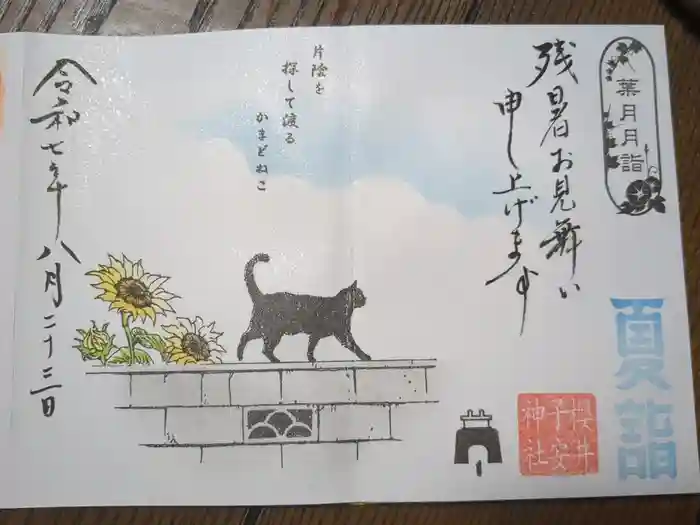 葉月月詣
残暑お見舞い
申し上げます
夏詣
片陰を
探して渡る
かまどねこ
櫻井
子安
神社
令和七年八月二十三日